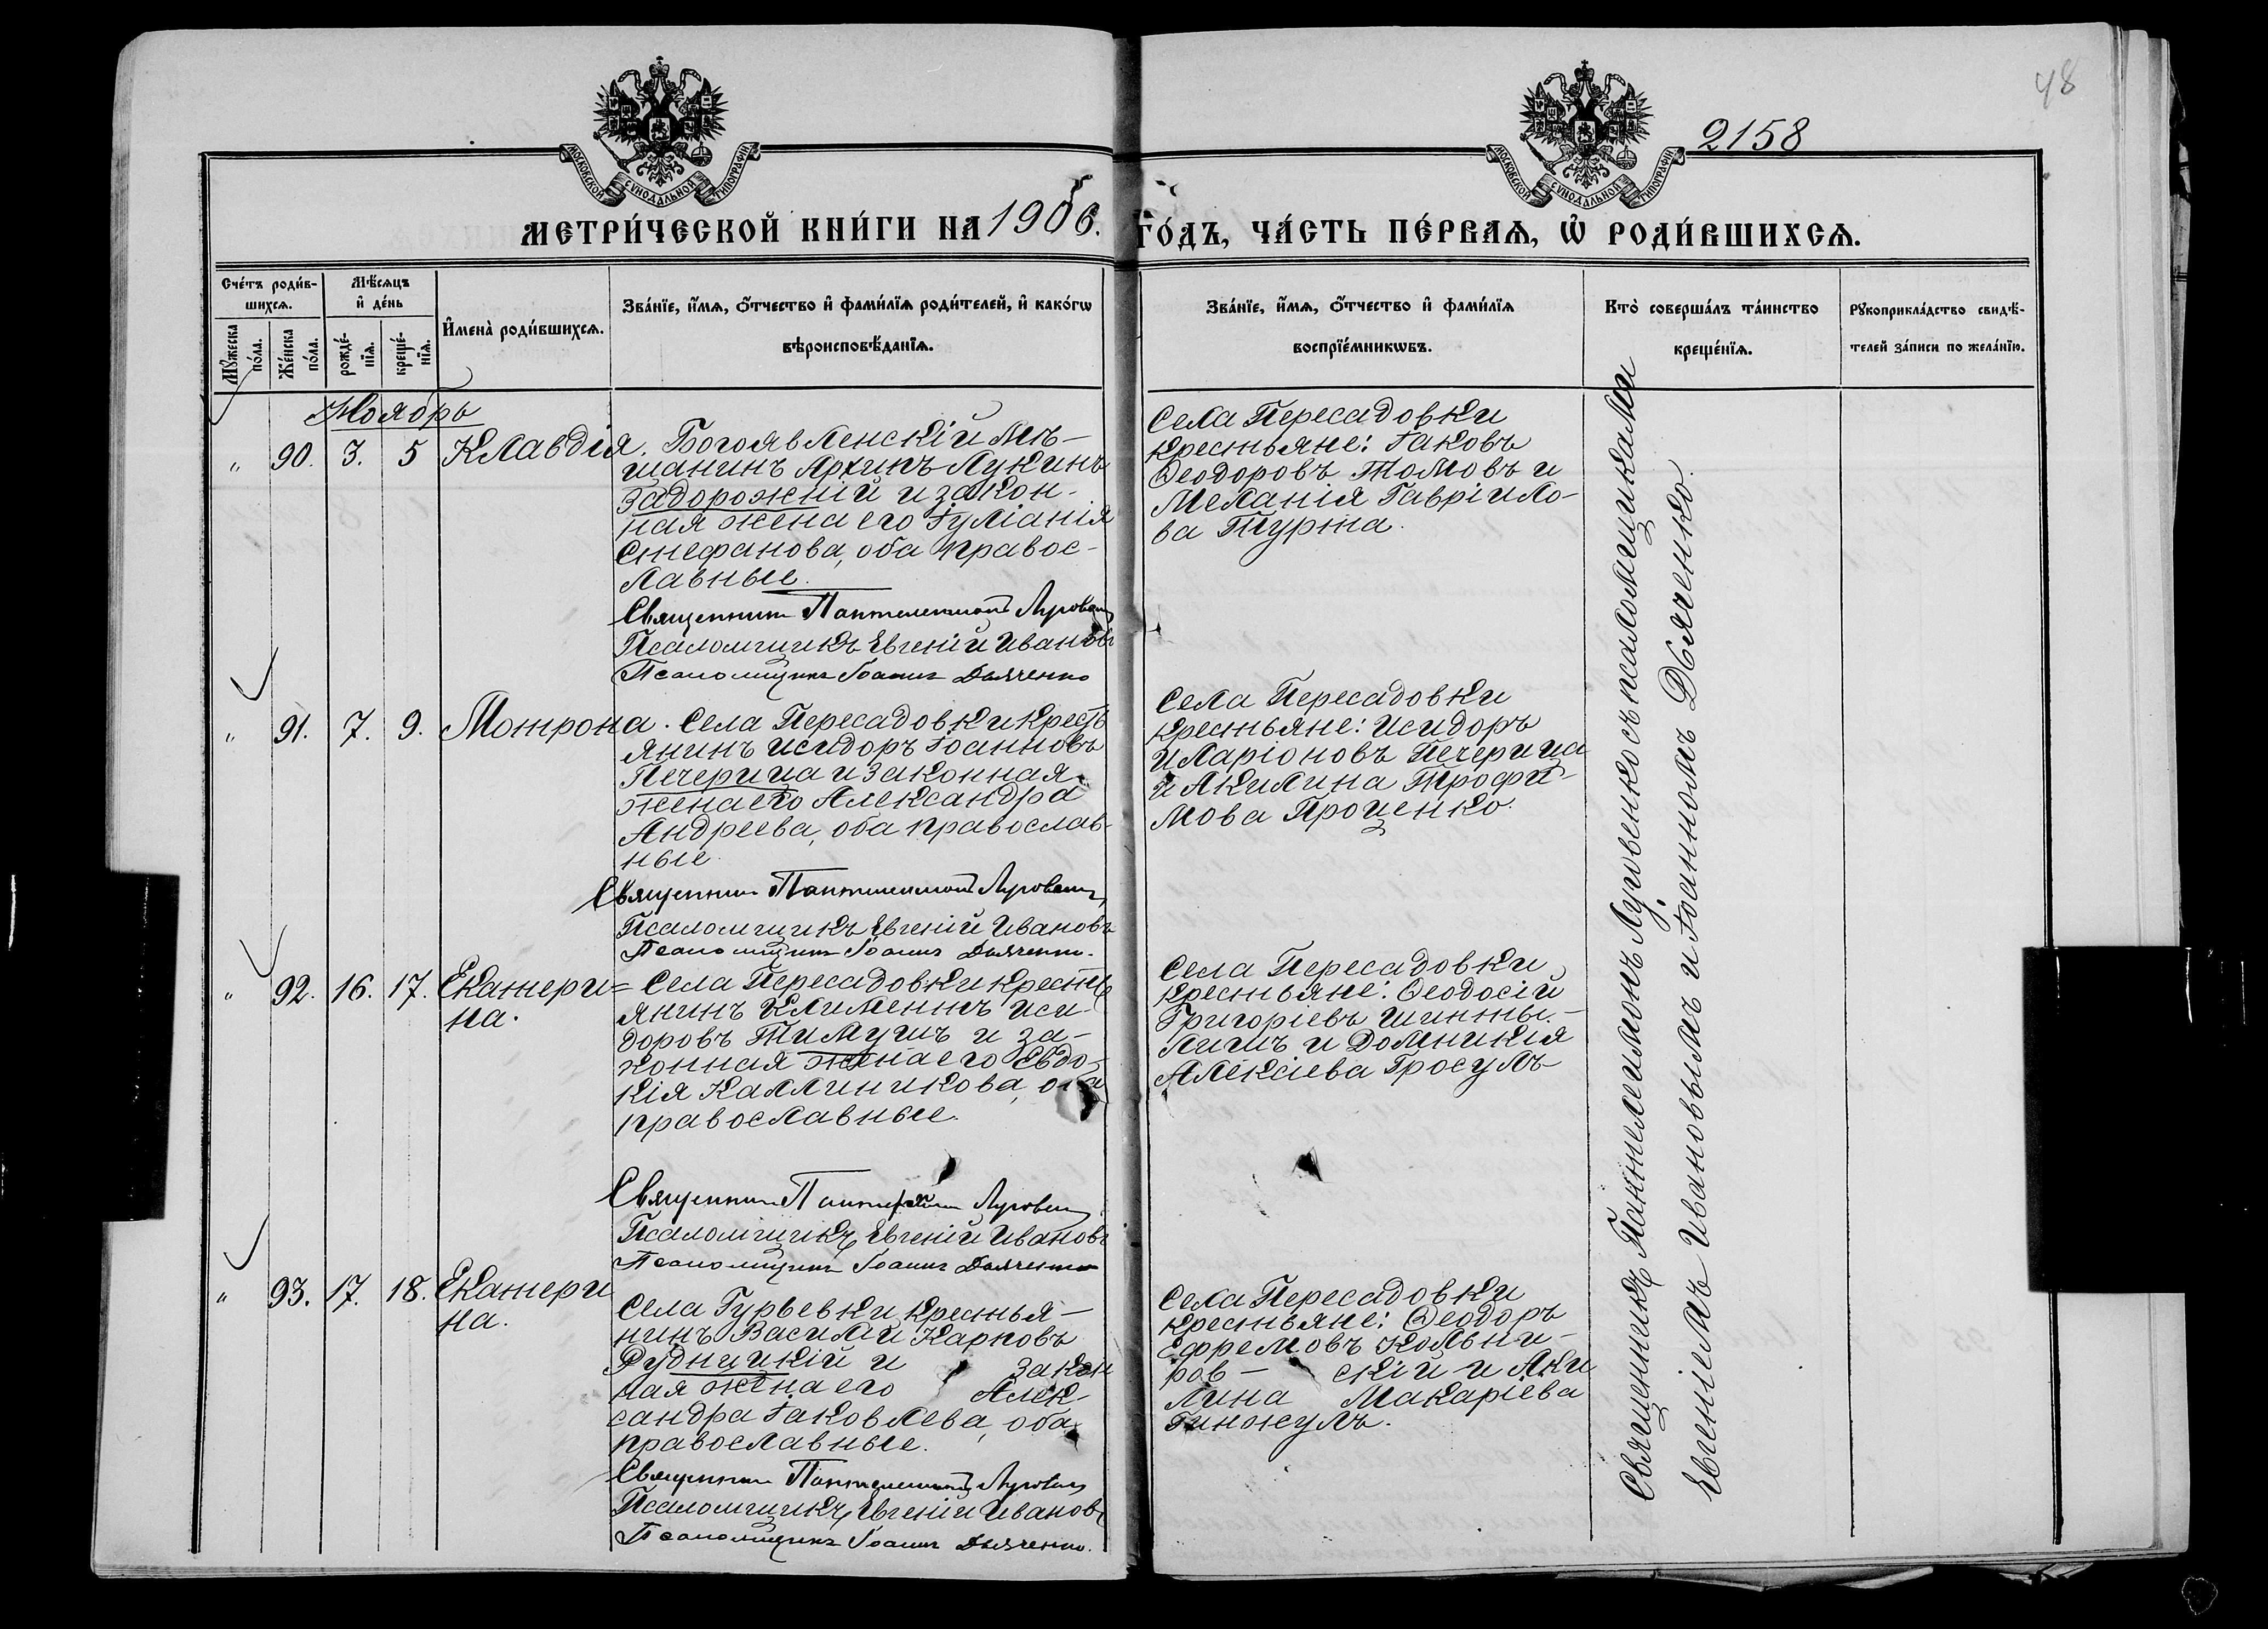 48
2158
МОСКОВСКОЙ СУНОДАЛЬНОЙ ТИПОГРАФІИ
МОСКОВСКОЙ СУНОДАЛЬНОЙ ТИПОГРАФІИ
МЕТРИ́ЧЕСКОЙ КНИ́ГИ НА 1906. ГО́ДЪ, ЧА́СТЬ ПЕ́РВАѦ, Ѡ҆ РОДИ́ВШИХСѦ.
Сче́тъ роди́в-
шихсѧ.
Мѣ́сѧцъ
и҆ де́нь
Мꙋ́жеска
по́ла.
Же́нска
по́ла.
рожде́-
нїѧ.
креще́-
нїѧ.
И҆мена̀ роди́вшихсѧ.
Зва́нїе, и҆́мѧ, ѻ҆́тчество и҆ фами́лїѧ роди́телей, и҆ како́гѡ
вѣроисповѣ́данїѧ.
Зва́нїе, и҆́мѧ, ѻ҆́тчество и҆ фами́лїѧ
воспрїе́мникѡвъ.
Кто̀ соверша́лъ та́инство
креще́нїѧ.
Рꙋкоприкла́дство свидѣ́-
телей за́писи по жела́нїю.
Ноябрь
" 90. 3. 5 Клавдія. Богоявленскій мѣ-
щанинъ Архипъ Лукинъ
Задорожній и закон-
ная жена его Іуліанія
Стефанова, оба правос-
лавные.
Священникъ Пантелеимонъ Луговенко
Псаломщикъ Евгеній Ивановъ
Псаломщикъ Іоаннъ Дьяченко
Села Пересадовки
крестьяне: Іаковъ
Ѳеодоровъ Томовъ и
Меланія Гавріило-
ва Турта.
" 91. 7. 9. Мотрона. Села Пересадовки кресть
янинъ Исидоръ Іоанновъ
Печерица и законная
жена его Александра
Андреева, оба православ-
ные
Священникъ Пантелеимонъ Луговенко
Псаломщикъ Евгеній Ивановъ
Псаломщикъ Іоаннъ Дьяченко.
Села Пересадовки
крестьяне: Исидоръ
Иларіоновъ Печерица
и Акилина Трофи-
мова Проценко.
" 92. 16. 17. Екатери= Села Пересадовки кресть
на.
янинъ Климентъ Иси-
доровъ Тимушъ и за-
конная жена его Евдо-
кія Каллиникова, оба
православные.
Священникъ Пантелеимонъ Луговенко
Псаломщикъ Евгеній Ивановъ
Псаломщикъ Іоаннъ Дьяченко
Села Пересадовки
крестьяне: Ѳеодосій
Григоріевъ
и Домникія
Алексіева Гросулъ
" 93. 17. 18. Екатери
на.
Села Гурьевки крестья-
нинъ Василій Карповъ
Рудницкій и закон
ная жена его Алек-
сандра Іаковлева, оба
православные.
Священникъ Пантелеимонъ Луговенко
Псаломщикъ Евгеній Ивановъ
Псаломщикъ Іоаннъ Дьяченко.
Села Пересадовки
крестьяне: Ѳеодоръ
Ефремовъ Кольни-
ров- скій и Аки
лина Макаріева
Гинжулъ.
Священникъ Пантелеимонъ Луговенко съ псаломщиками
Евгеніемъ Ивановымъ и Іоанномъ Дьяченко.